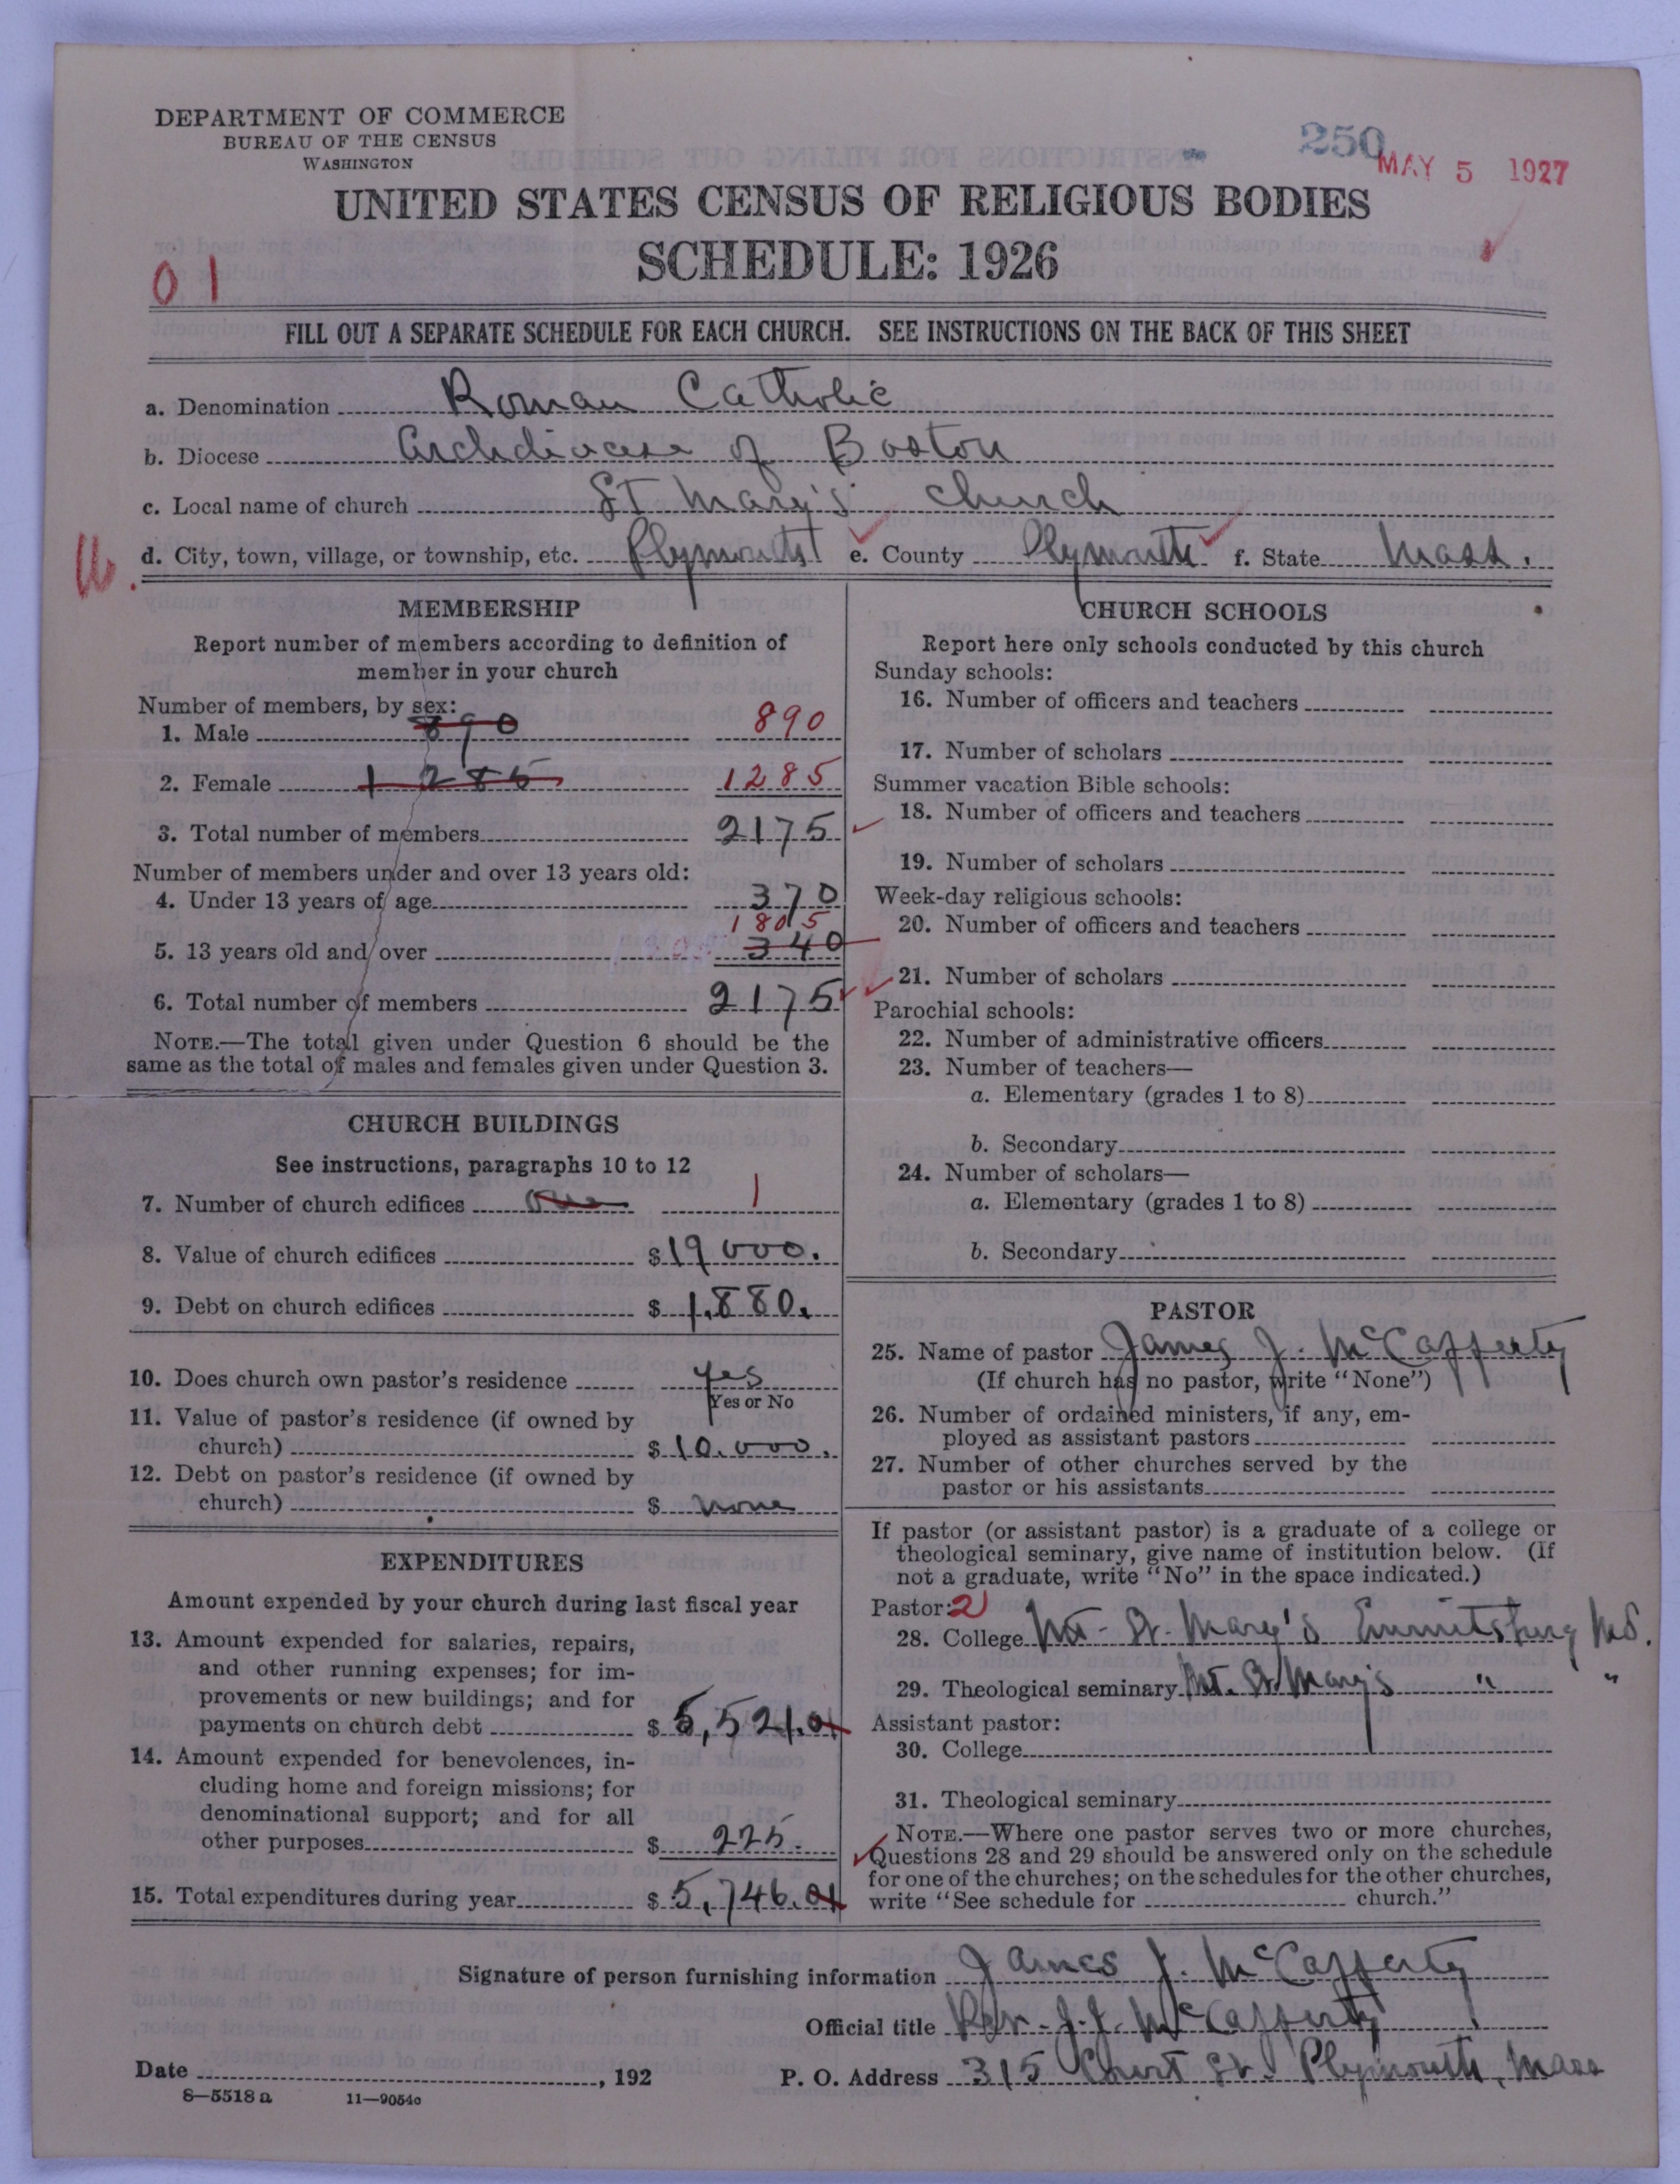 DEPARTMENT OF COMMERCE
BUREAU OF THE CENSUS
WASHINGTON
250
MAY 5 1927
UNITED STATES CENSUS OF RELIGIOUS BODIES
SCHEDULE: 1926
01
FILL OUT A SEPARATE SCHEDULE FOR EACH CHURCH. SEE INSTRUCTIONS ON THE BACK OF THIS SHEET
a. Denomination Roman Catholic
b. Diocese Archdiocese of Boston
c. Local name of church St Mary's Church
d. City, town, village, or township, etc. Plymouth e. County Plymouth f. State Mass.
MEMBERSHIP
Report number of members according to definition of
member in your church
Number of members, by sex:
1. Male 890 890
2. Female 1285 1285
3. Total number of members 2175
Number of members under and over 13 years old:
4. Under 13 years of age 370
1805
5. 13 years old and over 340
6. Total number of members 2175
NOTE.—The total given under Question 6 should be the
same as the total of males and females given under Question 3.
CHURCH BUILDINGS
See instructions, paragraphs 10 to 12
7. Number of church edifices One 1
8. Value of church edifices $19000.
9. Debt on church edifices $1,880.
10. Does church own pastor's residence yes
Yes or No
11. Value of pastor's residence (if owned by
church) $10.000.
12. Debt on pastor's residence (if owned by
church) $ none
EXPENDITURES
Amount expended by your church during last fiscal year
13. Amount expended for salaries, repairs,
and other running expenses; for im-
provements or new buildings; and for
payments on church debt $5,521.01
14. Amount expended for benevolences, in-
cluding home and foreign missions; for
denominational support; and for all
other purposes $225.
15. Total expenditures during year $5,746.01
CHURCH SCHOOLS
Report here only schools conducted by this church
Sunday schools:
16. Number of officers and teachers
17. Number of scholars
Summer vacation Bible schools:
18. Number of officers and teachers
19. Number of scholars
Week-day religious schools:
20. Number of officers and teachers
21. Number of scholars
Parochial schools:
22. Number of administrative officers
23. Number of teachers—
a. Elementary (grades 1 to 8)
b. Secondary
24. Number of scholars—
a. Elementary (grades 1 to 8)
b. Secondary
PASTOR
25. Name of pastor James J. McCafferty
(If church has no pastor, write "None")
26. Number of ordained ministers, if any, em-
ployed as assistant pastors
27. Number of other churches served by the
pastor or his assistants
If pastor (or assistant pastor) is a graduate of a college or
theological seminary, give name of institution below. (If
not a graduate, write "No" in the space indicated.)
Pastor: 2
28. College Mt. St. Mary's Emmitsburg Md.
29. Theological seminary Mt. St. Mary's " "
Assistant pastor:
30. College
31. Theological seminary
NOTE.—Where one pastor serves two or more churches,
Questions 28 and 29 should be answered only on the schedule
for one of the churches; on the schedules for the other churches,
write "See schedule for church."
Signature of person furnishing information James J. McCafferty
Official title Rev. J. J. McCafferty
Date , 192 P. O. Address 315 Court St. Plymouth, Mass
8—5518 a 11—9054c